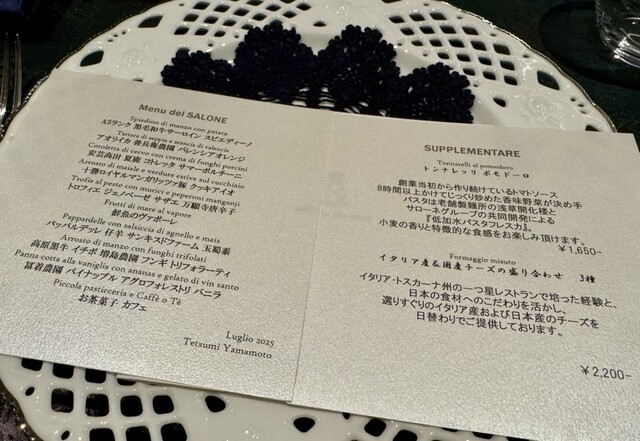 Menu del SALONE
Spiedino di manzo con patata
A5ランク 黒毛和牛サーロイン スピエディーノ
Tartara di seppia e arancia di valencia
アオリイカ 善兵衛農園 バレンシアオレンジ
Cotoletta di cervo con crema di funghi porcini
安芸高田 夏鹿 コトレッタ サマーポルチーニ
Arrosto di maiale e verdure estive sul cucchiaio
十勝ロイヤルマンガリッツァ豚 クッキアイオ
Trofie al pesto con murici e peperoni manganji
トロフィエ ジェノベーゼ サザエ 万願寺唐辛子
Frutti di mare al vapore
鮮魚のヴァポーレ
Pappardelle con salsiccia di agnello e mais
パッパルデッレ 仔羊 サンキスドファーム 玉蜀黍
Arrosto di manzo con funghi trifolati
高原黒牛 イチボ 増島農園 フンギ トリフォラーティ
Panna cotta alla vaniglia con ananas e gelato di vin santo
冨着農園 パイナップル アグロフォレストリ バニラ
Piccola pasticceria e Caffè o Tè
お茶菓子 カフェ
Luglio 2025
Tetsumi Yamamoto
SUPPLEMENTARE
Tonnarelli al pomodoro
トンナレッリ ポモドーロ
創業当初から作り続けているトマトソース
8時間以上かけてじっくり炒めた香味野菜が決め手
パスタは老舗製麺所の浅草開化楼と
サローネグループの共同開発による
『低加水パスタフレスカ』。
小麦の香りと特徴的な食感をお楽しみ頂けます。
¥1,650-
Formaggio misuto
イタリア産&国産チーズの盛り合わせ 3種
イタリア・トスカーナ州の一つ星レストランで培った経験と、
日本の食材へのこだわりを活かし、
選りすぐりのイタリア産および日本産のチーズを
日替わりでご提供しております。
¥2,200-